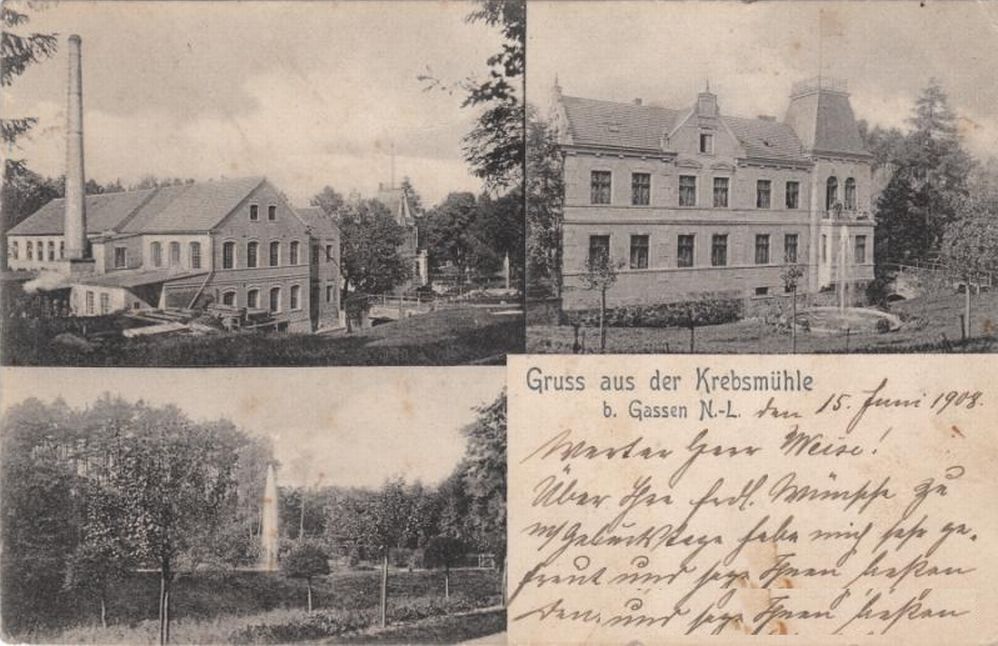 Gruss aus der Krebsmühle
b. Gassen N.-L. den 15. Juni 1908.
Werter Herr Weise!
Über Ihre frdl. Wünsche zu
m/Geburtstage habe mich sehr ge-
freut und sage Ihnen besten
und sage Ihnen besten